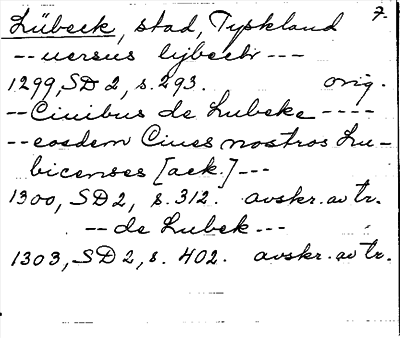 7.
Lübeck, stad, Tyskland
-- uersus lybeck ---
1299, SD 2, s. 293. orig.
-- Ciuibus de Lubeke ----
-- eosdem Ciues nostros Lu-
bicenses [ack.] ---
1300, SD 2, s. 312. avskr. av tr.
-- de Lubek ---
1303, SD 2, s. 402. avskr. av tr.